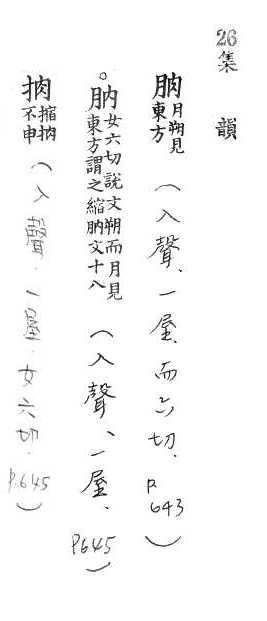 26集 韻
朒月朔見東方(入聲、一屋、而六切.P643)
。肭女六切說文朔而月見東方謂之縮肭文十八(入聲、一屋、P645)
抐搐抐不申(入聲.一屋.女六切.P.645)